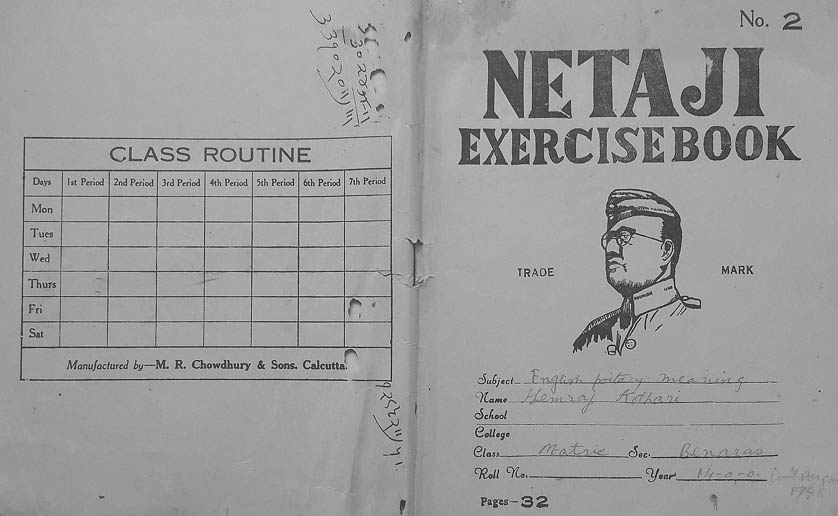 CLASS ROUTINE
Days 1st Period 2nd Period 3rd Period 4th Period 5th Period 6th Period 7th Period
Mon
Tues
Wed
Thurs
Fri
Sat
Manufactured by—M. R. Chowdhury & Sons. Calcutta.
No. 2
NETAJI
EXERCISE BOOK
TRADE MARK
Subject English poitary meaning
Name Hemraj Kothari
School
College
Class Matric Sec. Benaras
Roll No. Year
Pages—32